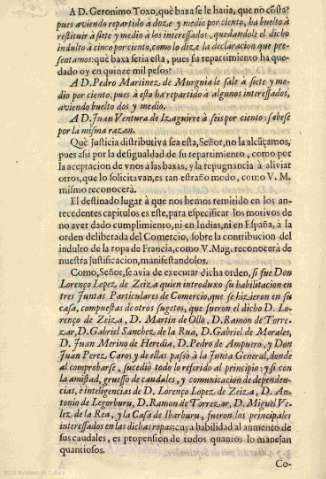 A D. Geronimo Toxo, què baxa se le haria, que no cõsta?
pues aviendo repartido à doze y medio por ciento, ha buelto à
restituir à siete y medio à los interessados, quedandole el dicho
indulto à cinco por ciento, como lo diza la declaracion que pre-
sentamos: què baxa seria esta, pues su repartimento ha que-
dado oy en quinze mil pesos?
A D. Pedro Martinez de Murguia le sale à siete y me-
dio por ciento, pues à esto ha repartido à algunos interessados,
aviendo buelto dos y medio.
A D. Juan Ventura de Izaguirre à seis por ciento: sabese
por la misma razon.
Què justicia distributiva sea esta, Señor, no la alcãçamos,
pues assi por la desigualdad de su repartimento, como por
la aceptacion de vnos à las baxas, y la repugnancia à aliviar
otros, que lo solicitavan, es tan estraño modo, como V. M.
mismo reconocerà.
El destinado lugar à que nos hemos remitido en los an-
tecedentes capitulos es este, para especificar los motivos de
no aver dado cumplimiento, ni en Indias, ni en España, à la
orden delibertada del Comercio, sobre la contribucion del
indulto de la ropa de Francia, como V. Mag. reconocerà de
nuestra justificacion, manifestandolos.
Como, Señor, se avia de executar dicha orden, si fue Don
Lorenço Lopez de Zeiza quien introduxo su habilitacion en
tres Juntas Particulares de Comercio, que se hizieron en su
casa, compuestas de otros sugetos, que fueron el dicho D. Lo-
renço de Zeiza, D. Martin de Olla, D. Ramon de Torre-
zar, D. Gabriel Sanchez de la Rua, D. Gabriel de Morales,
D. Juan Merino de Heredia, D. Pedro de Ampuero, y Don
Juan Perez Caro; y de ellas passò à la Junta General, donde
al comprobarse, sucediò todo lo referido al principio; y si con
la amistad, gruesso de caudales, y comunicacion de dependen-
cias, è inteligencias de D. Lorenço Lopez de Zeiza, D. An-
tonio de Legorburu, D. Ramon de Torrezar, D. Miguel Ve-
lez de la Rea, y la Casa de Ibarburu, fueron los principales
interessados en las dichas ropas: cuya habilidad al aumento de
sus caudales, es propension de todos quantos lo manejan
quantiosos.
Co-